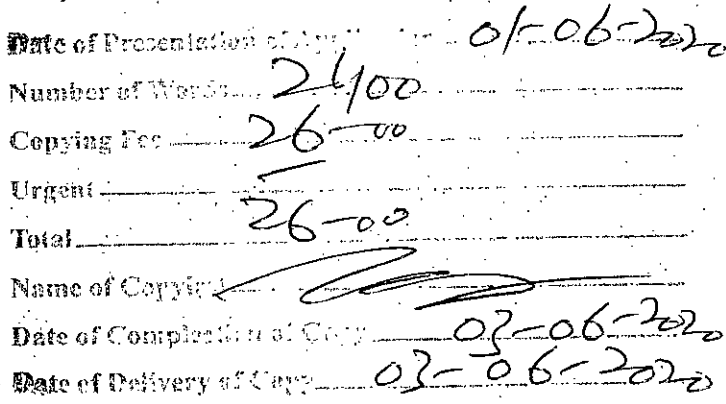 Date of Presentation of Application 01-06-2020
Number of Words 2400
Copying Fee 26-00
Urgent
Total 26-00
Name of Copyist
Date of Completion of Copy 03-06-2020
Date of Delivery of Copy 03-06-2020